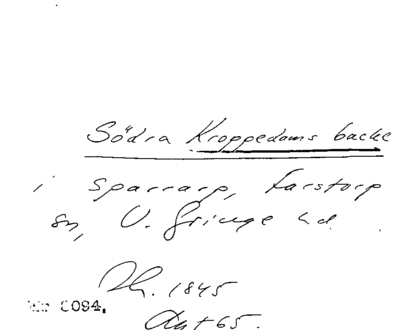 Södra Kroppedams backe
i Sparrarp, Farstorp
sn, V. Göinge hd.
1845
0094.
65.